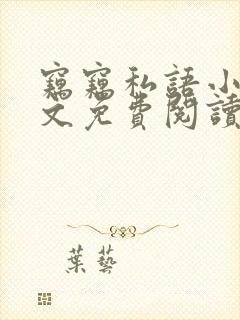 竊竊私語小
文免費閱讀
葉藝